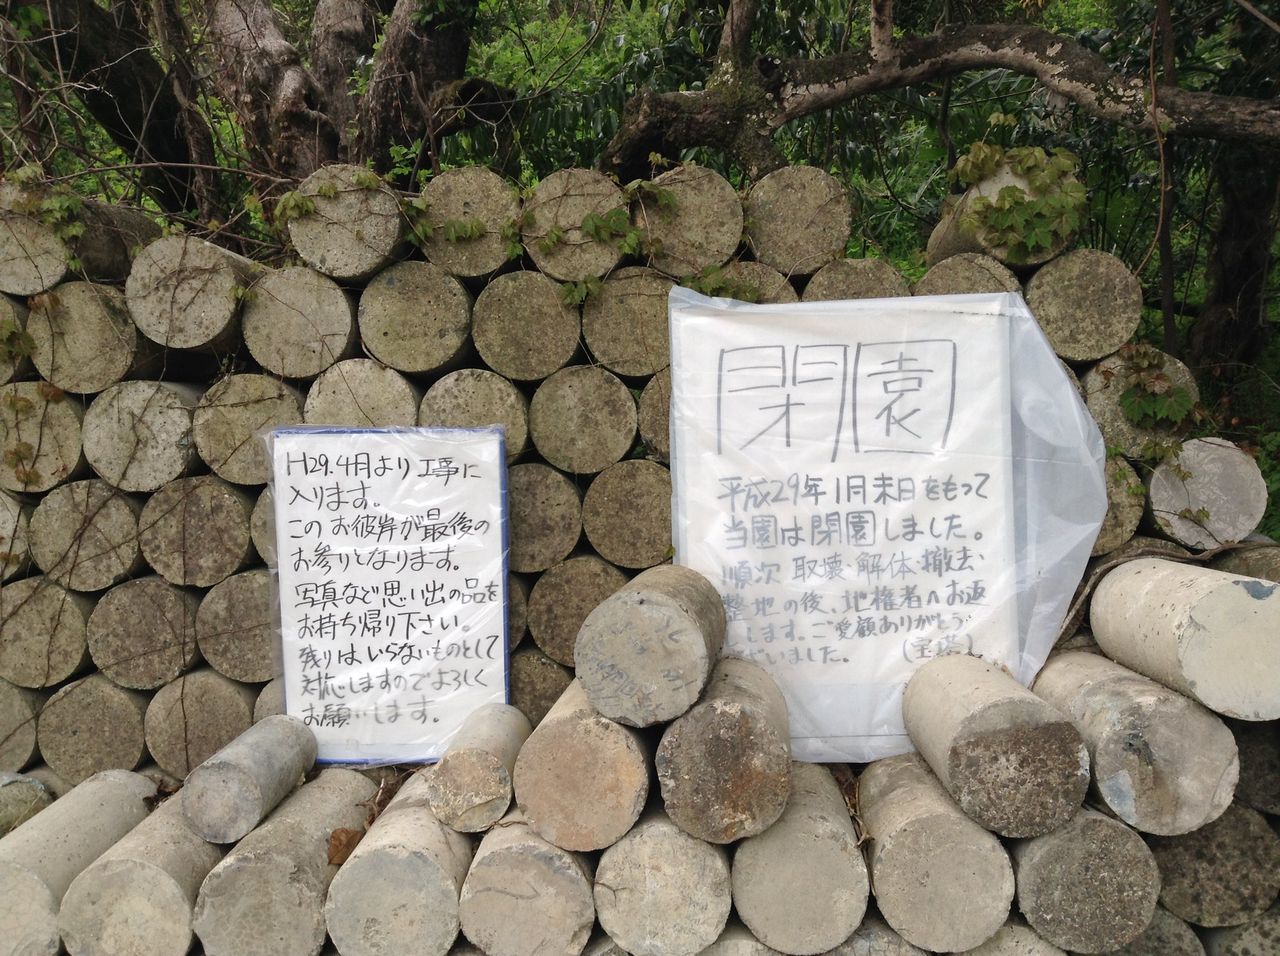 H29.4月より工事に
入ります。
このお彼岸が最後の
お参りとなります。
写真など思い出の品を
お持ち帰り下さい。
残りはいらないものとして
対応しますのでよろしく
お願いします。
閉園
平成29年1月末日をもって
当園は閉園しました。
順次 取壊・解体・撤去、
整地の後、地権者へお返
しします。ご愛顧ありがとう
ございました。(宝塔)